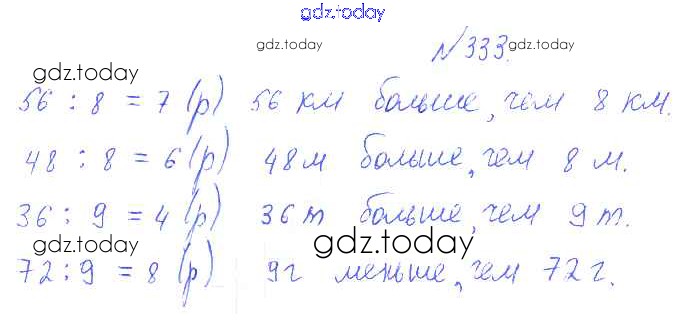 gdz.today
gdz.today
№333.
gdz.today
gdz.today
56 : 8 = 7 (р) 56 км больше, чем 8 км.
48 : 8 = 6 (р) 48 м больше, чем 8 м.
36 : 9 = 4 (р) 36 т больше, чем 9 т.
gdz.today
gdz.today
72 : 9 = 8 (р) 9 г меньше, чем 72 г.